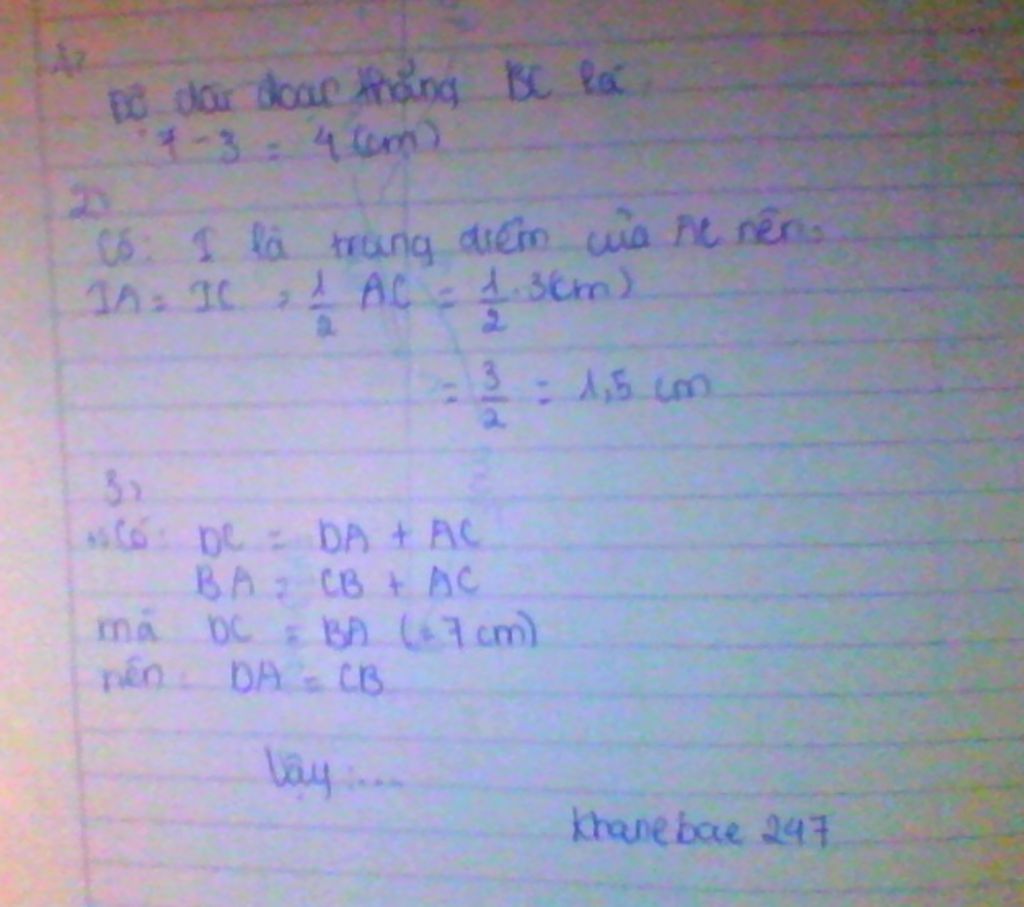 1)
Độ dài đoạn thẳng BC là
7 - 3 = 4 (cm)
2)
Có: I là trung điểm của AC nên:
IA = IC = 1/2 AC = 1/2 . 3(cm)
= 3/2 = 1,5 cm
3)
Có: DC = DA + AC
BA = CB + AC
mà DC = BA (=7cm)
nên: DA = CB
Vậy:....
khanebae 247